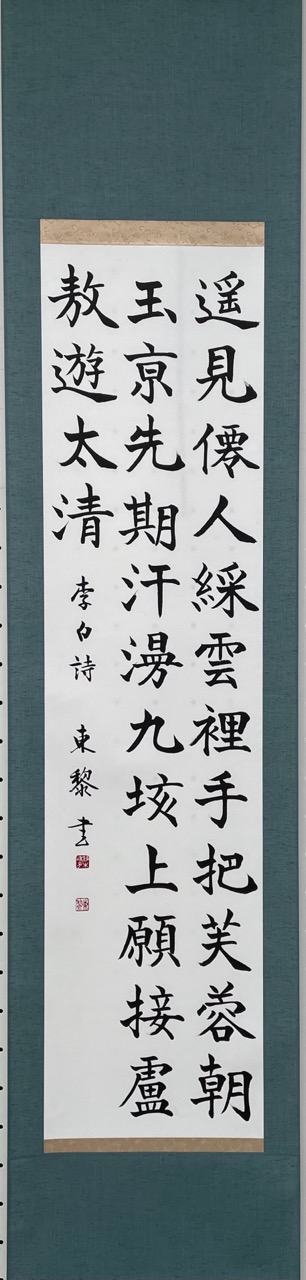 遥見僊人綵雲裡手把芙蓉朝
玉亰先期汗漫九垓上願接盧
敖遊太清
李白詩 東黎書